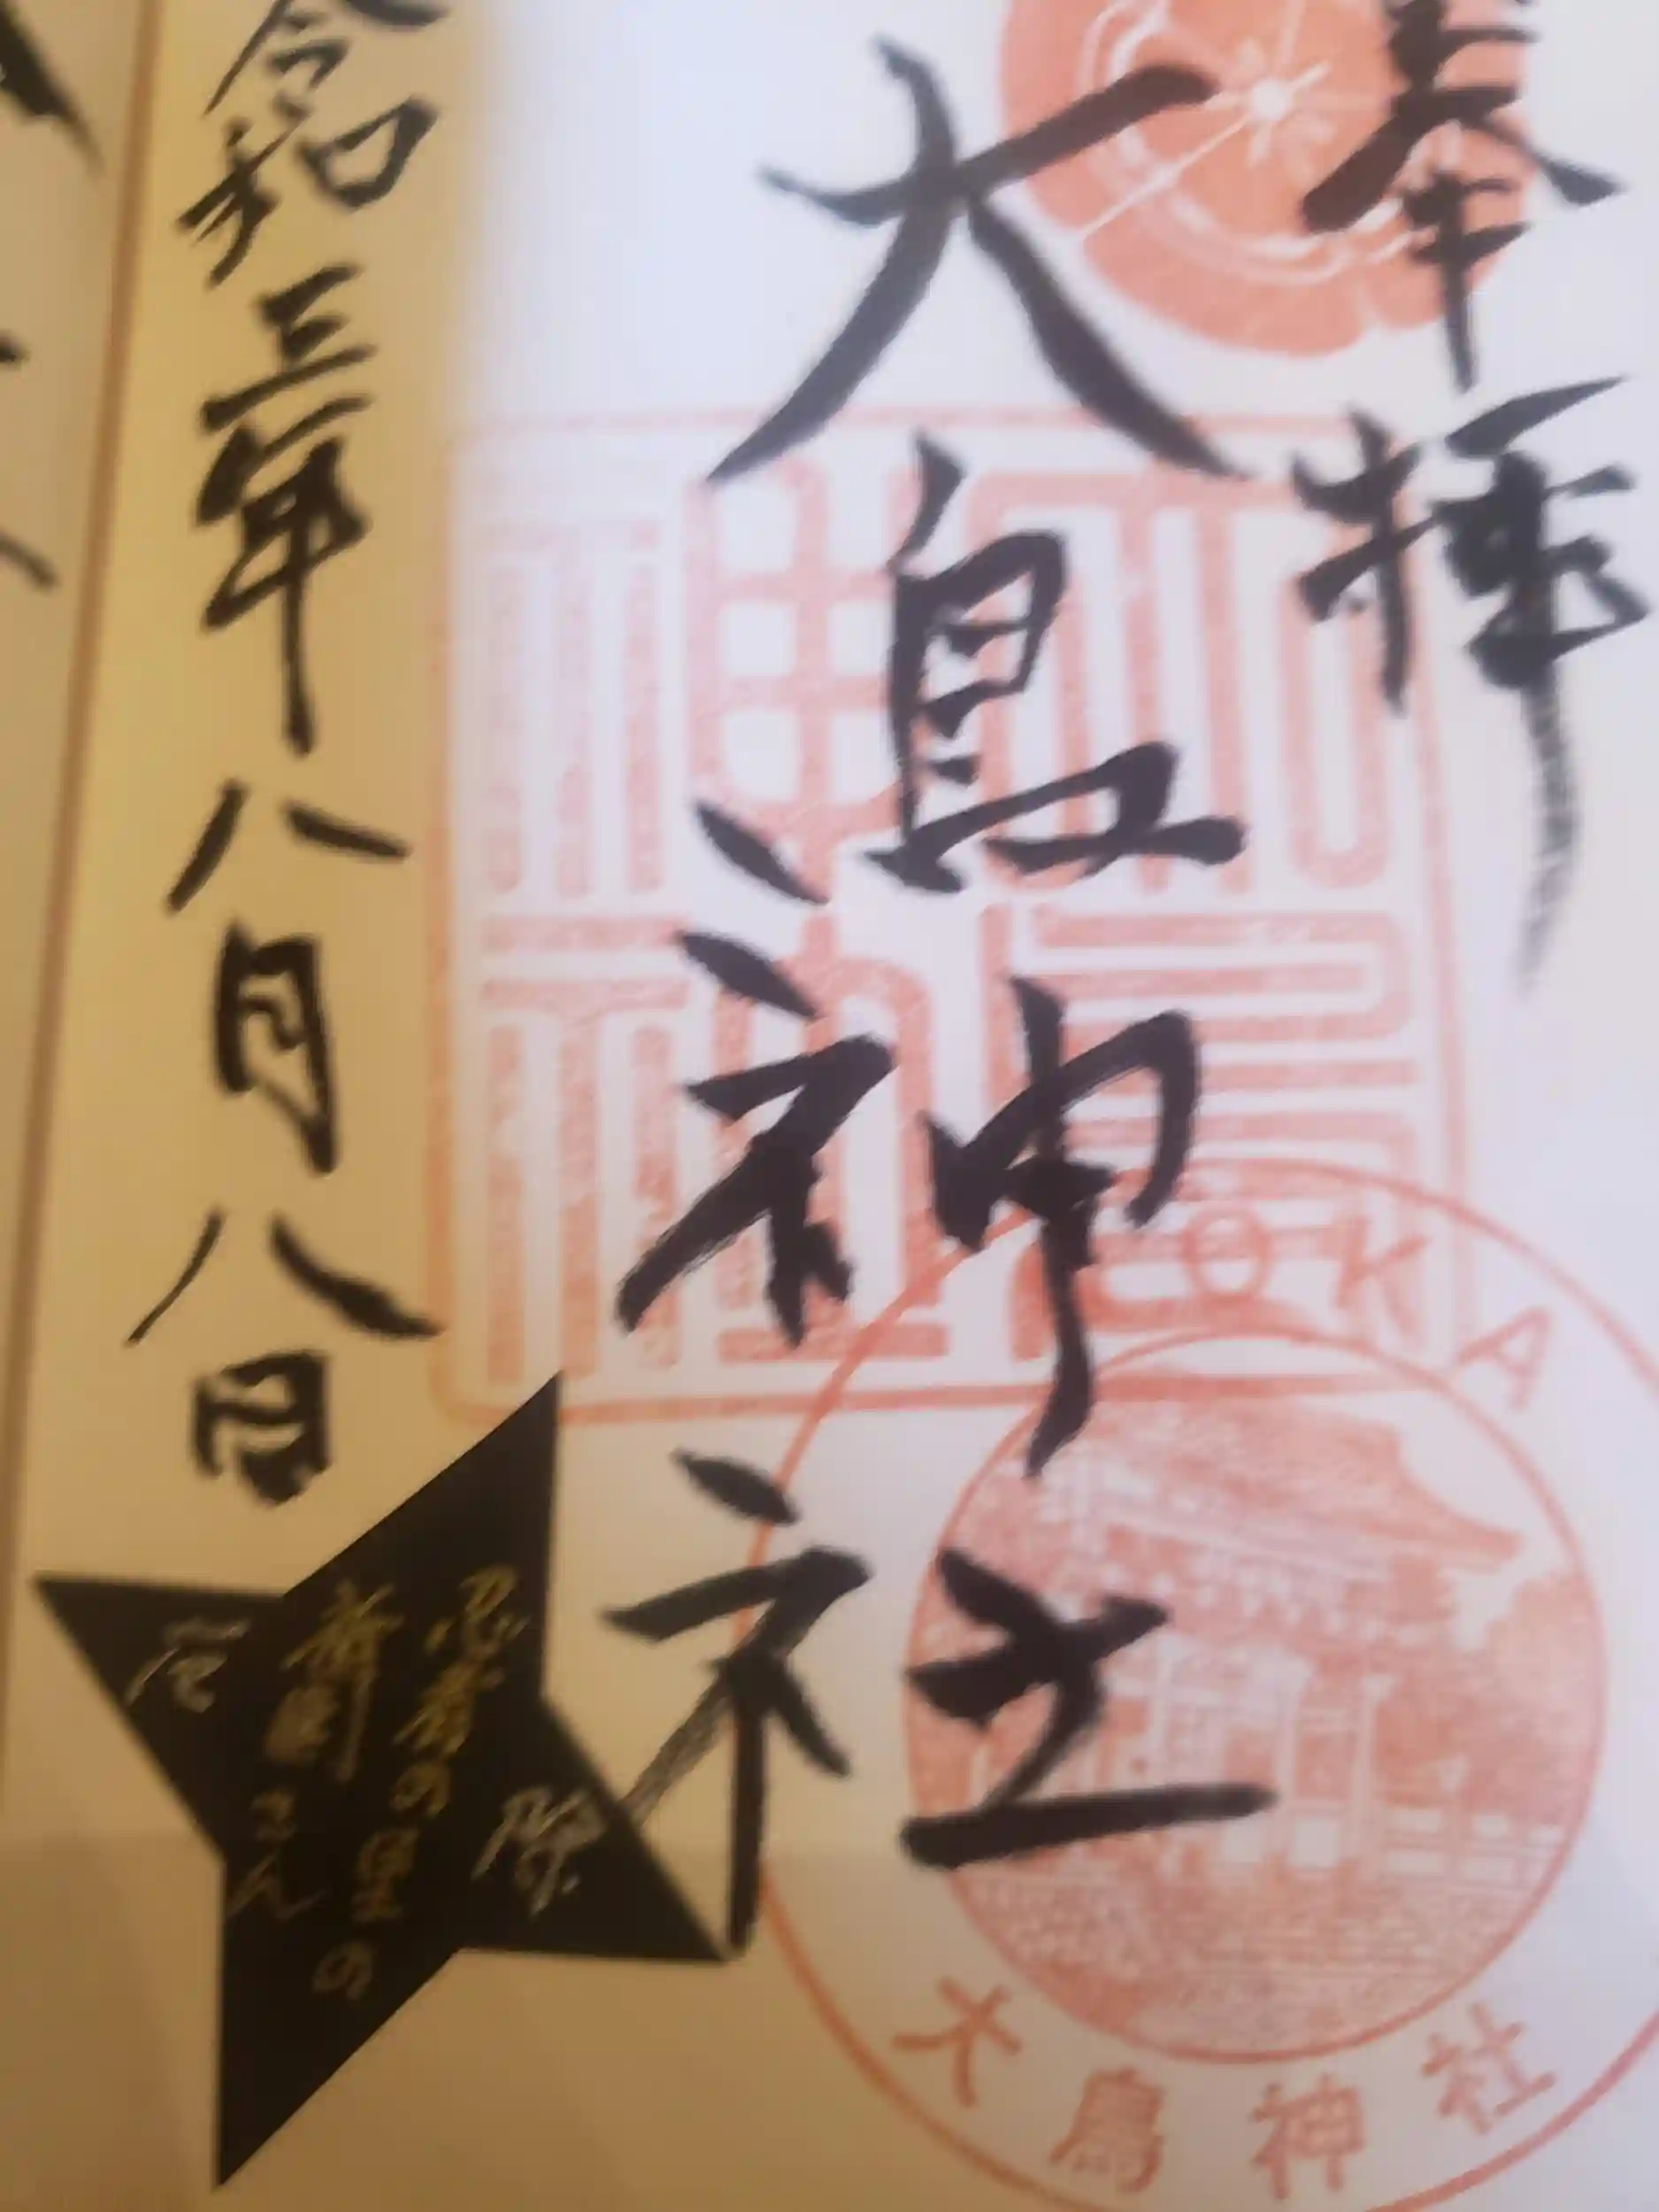 奉拝
大鳥神社
令和三年八月八日
忍者の里の
祇園さん
KOKA
大鳥神社